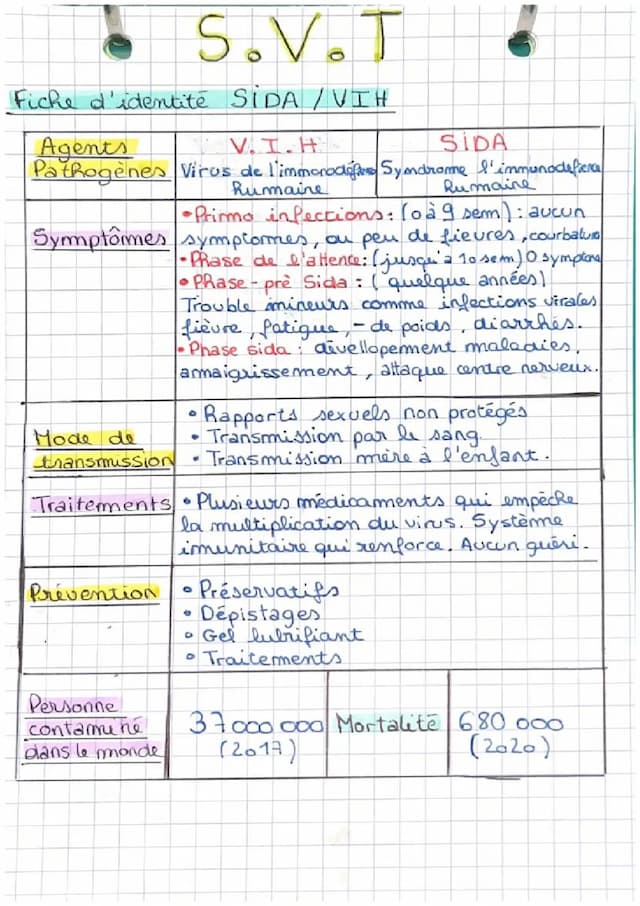 S.V.T
Fiche d'identité SIDA / VIH
Agents
Pathogènes
V.I.H
Virus de l'immunodéficience
Rumaine
SIDA
Symdrome l'immunodeficiena
Rumaine
Symptômes
•Primo infections: (0 à 9 sem): aucun
symptomes, ou peu de fievres, courbatures
•Phase de l'attente: (jusqu'a 10 sem) 0 symptome
•Phase-prè Sida : (quelque années)
Trouble mineurs comme infections virales
fièvre, fatigue, - de poids, diarrhés.
•Phase sida : divellopement maladies,
amaigrissement, attaque centre nerveux.
Mode de
transmission
• Rapports sexuels non protégés
• Transmission par le sang.
• Transmission mère à l'enfant.
Traitements
• Plusieurs médicaments qui empêche
la multiplication du virus. Système
imunitaire qui renforce. Aucun guéri.
Prévention
• Préservatifs
• Dépistages
• Gel lubrifiant
• Traitements
Personne
contaminé
dans le monde
37 000 000
(2017)
Mortalité
680 000
(2020)